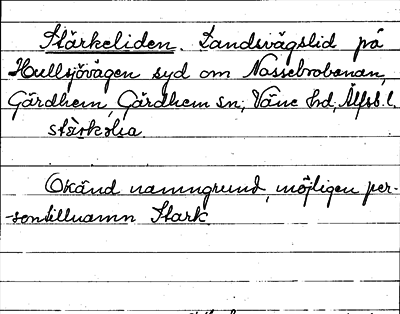 Stärkeliden. Landsvägslid på
Hullsjövägen syd om Nossebrobanan,
Gärdhem, Gärdhem sn; Väne hd, Älfsb. l.
stàrkəlıa.
Okänd namngrund, möjligen per-
-sontillnamn Stark.